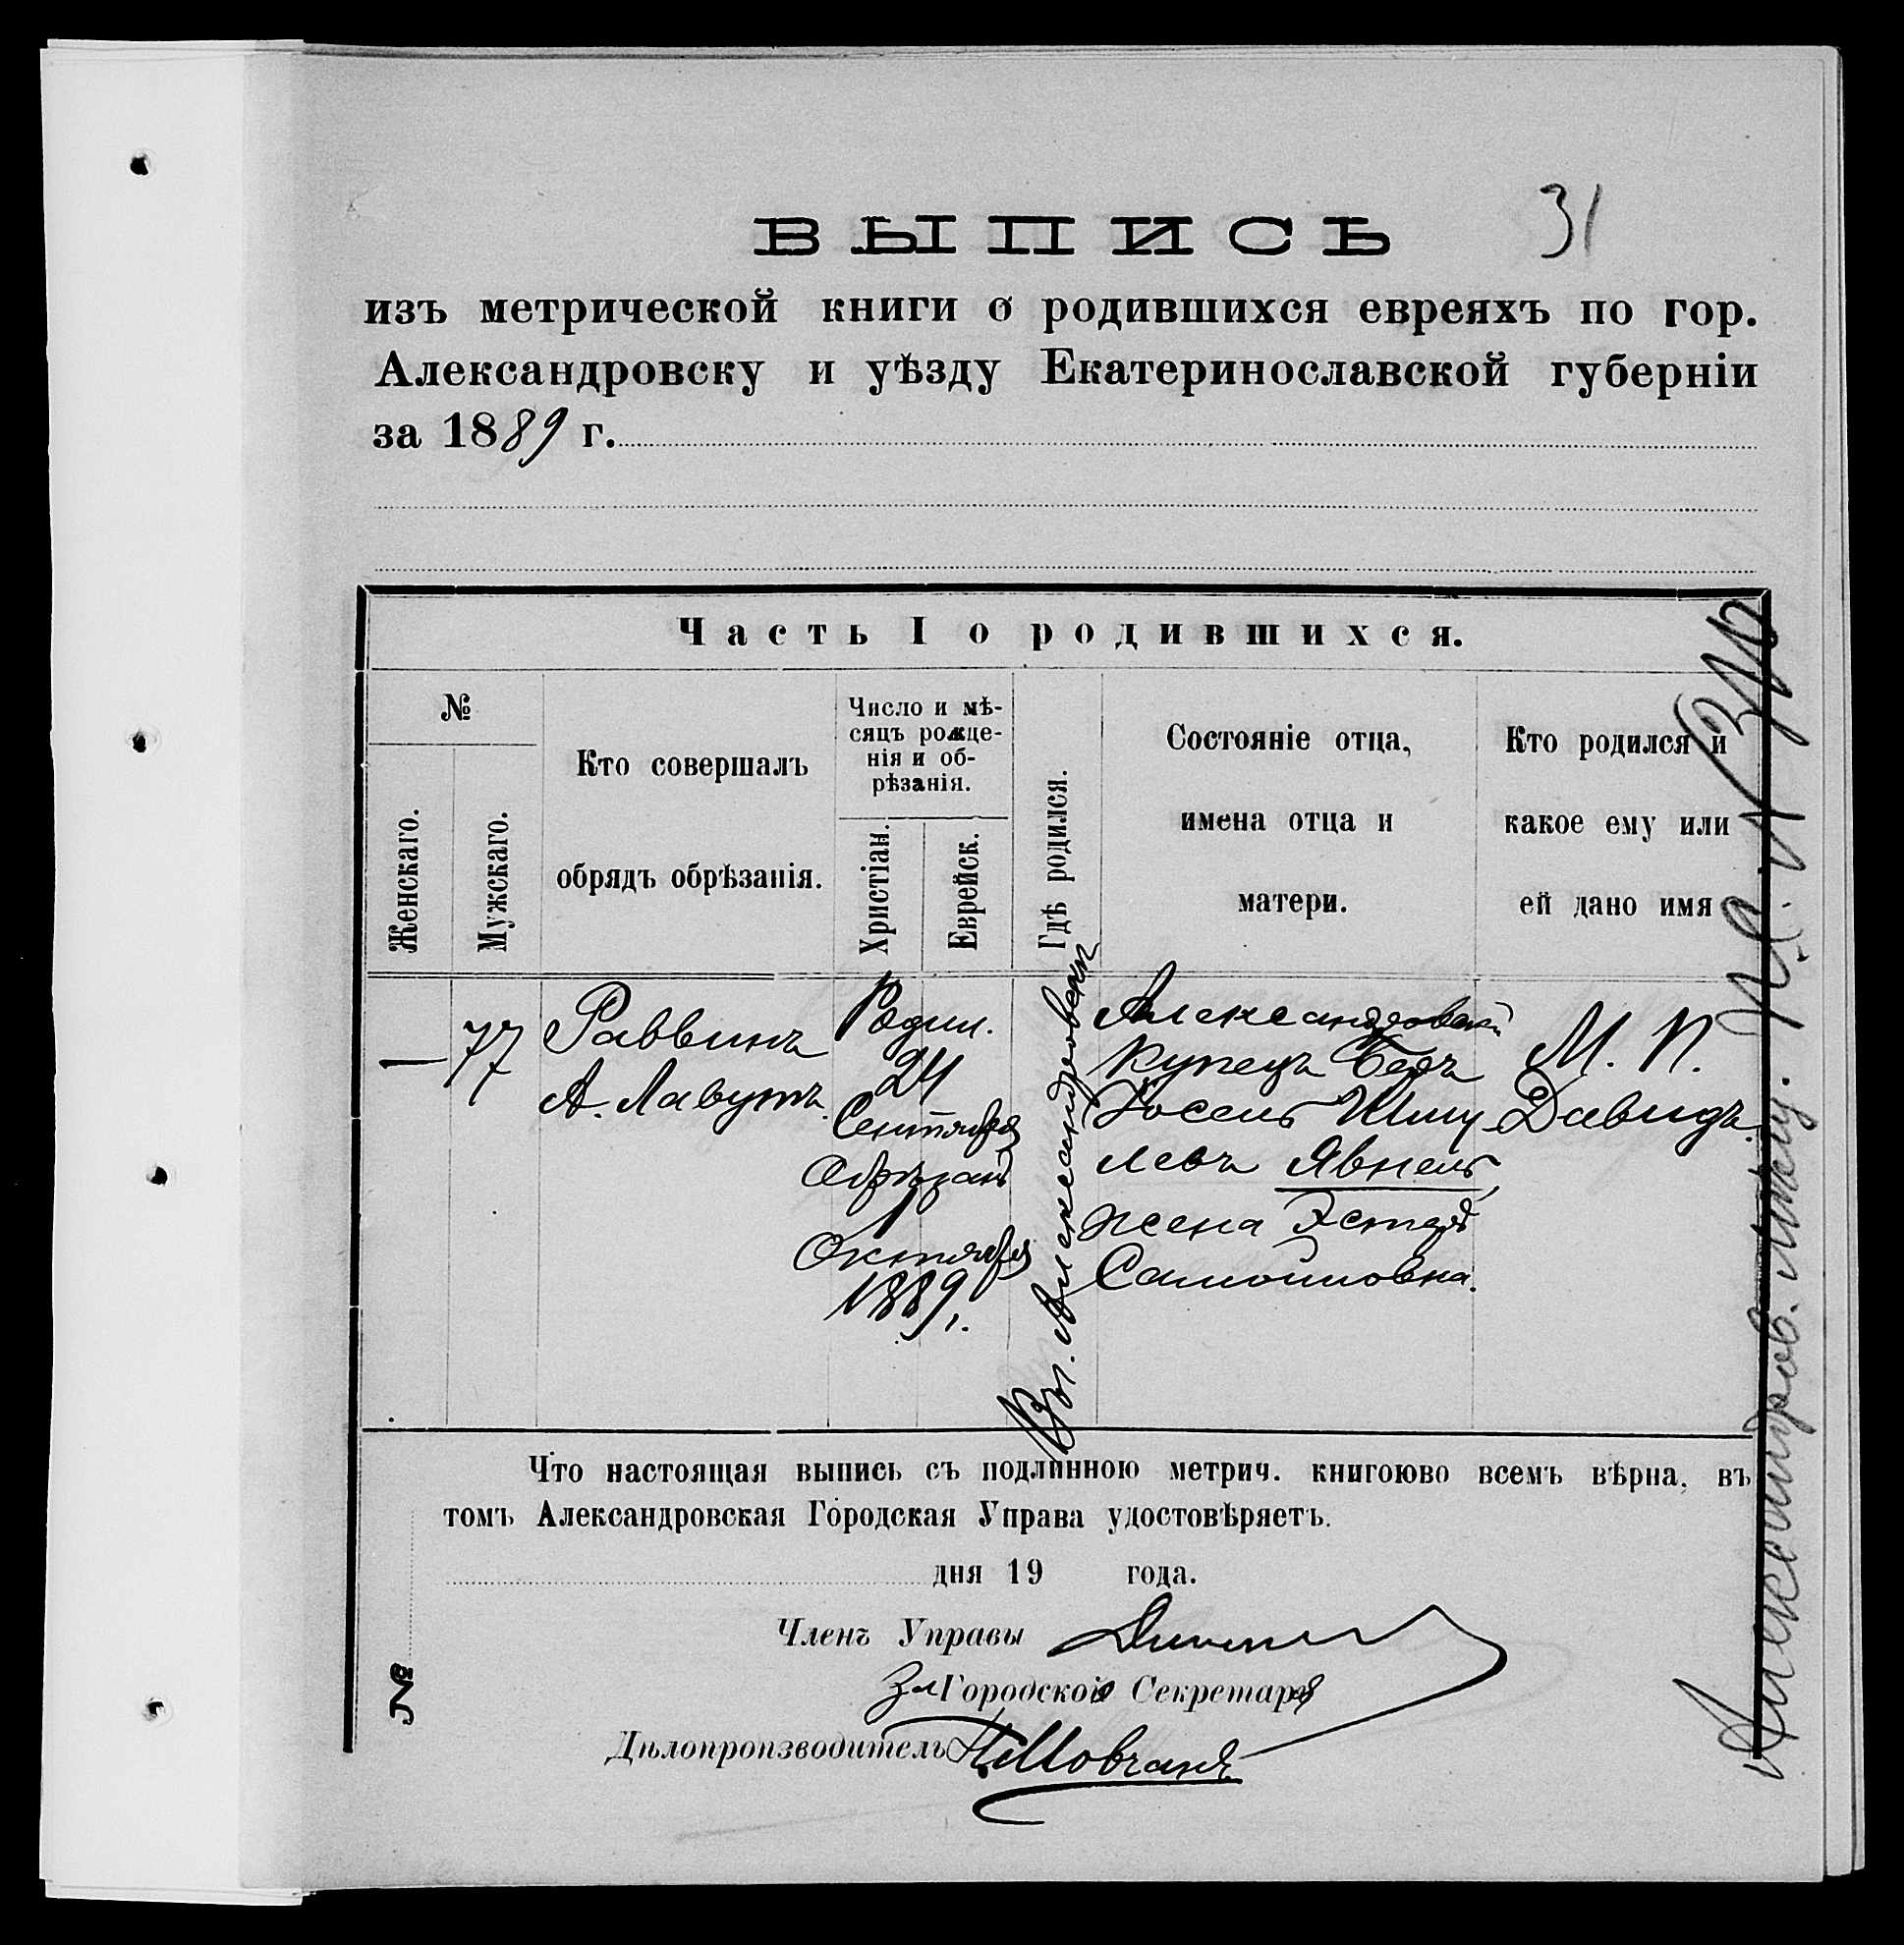 31
ВЫПИСЬ
изъ метрической книги о родившихся евреяхъ по гор.
Александровску и уѣзду Екатеринославской губерніи
за 1889 г.
Часть I о родившихся.
№
Женскаго.
Мужскаго.
Кто совершалъ
обрядъ обрѣзанія.
Число и мѣ-
сяцъ рожде-
нія и об-
рѣзанія.
Христіан.
Еврейск.
Гдѣ родился.
Состояніе отца,
имена отца и
матери.
Кто родился и
какое ему или
ей дано имя
—
77
Раввинъ
А. Лавутъ.
Родил.
24
Сентября
Обрѣзанъ
1
Октября
1889 г.
Въ г. Александровскѣ
Александровскій
купецъ Беръ
Іосель Шму
левъ Явнель,
жена Эстеръ
Самойловна.
М. П.
Давидъ.
Александров.
Что настоящая выпись съ подлинною метрич. книгоюво всемъ вѣрна, въ
томъ Александровская Городская Управа удостовѣряетъ.
дня 19 года.
№
Членъ Управы
За Городского Секретаря
Дѣлопроизводитель Н. Мовчанъ